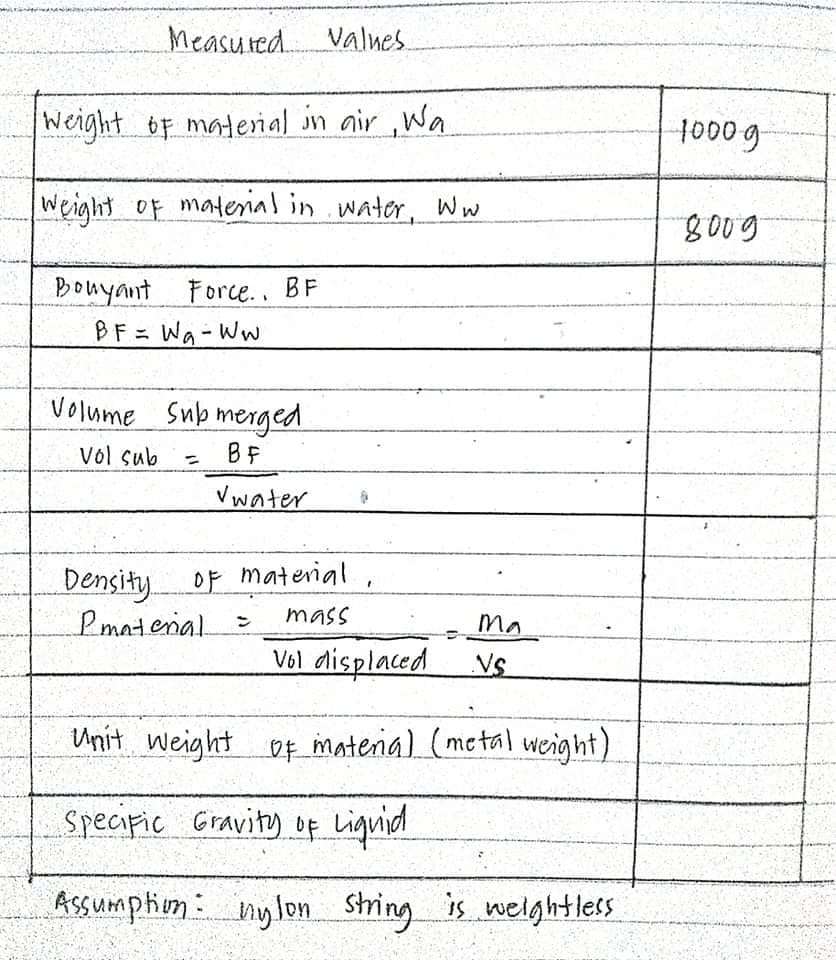 Measured Values
Weight of material in air, Wa 1000 g
Weight of material in water, Ww 800 g
Bouyant Force., BF
BF = Wa - Ww
Volume Submerged
Vol sub = BF
γwater
Density of material,
Pmaterial = mass = ma
Vol displaced Vs
Unit weight of material (metal weight)
Specific Gravity of Liquid
Assumption: nylon string is weightless